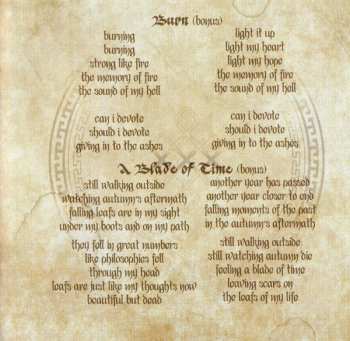 Burn (bonus)
burning
burning
strong like fire
the memory of fire
the sound of my hell
can i devote
should i devote
giving in to the ashes
light it up
light my heart
light my hope
the memory of fire
the sound of my hell
can i devote
should i devote
giving in to the ashes
A Blade of Time (bonus)
still walking outside
watching autumn's aftermath
falling leafs are in my sight
under my boots and on my path
they fell in great numbers
like philosophies fell
through my head
leafs are just like my thoughts now
beautiful but dead
another year has passed
another year closer to end
falling moments of the past
in the autumn's aftermath
still walking outside
still watching autumn die
feeling a blade of time
leaving scars on
the leafs of my life